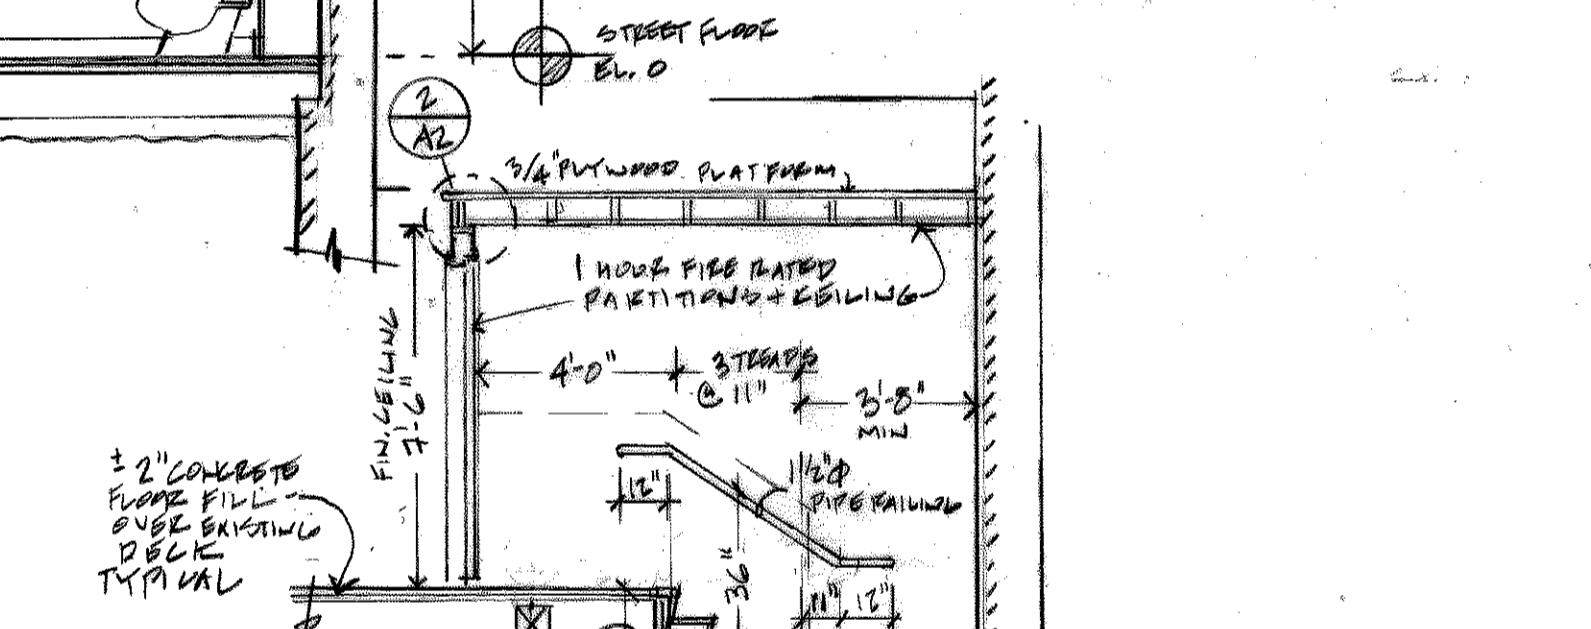 STREET FLOOR
EL. 0
2
A2
3/4" PLYWOOD PLATFORM
1 HOUR FIRE RATED
PARTITIONS + CEILING
FIN. CEILING
7'-6"
4'-0"
3 TREADS
@ 11"
3'-8"
MIN
± 2" CONCRETE
FLOOR FILL
OVER EXISTING
DECK
TYPICAL
12"
1 1/2" Φ
PIPE RAILING
36"
11"
12"